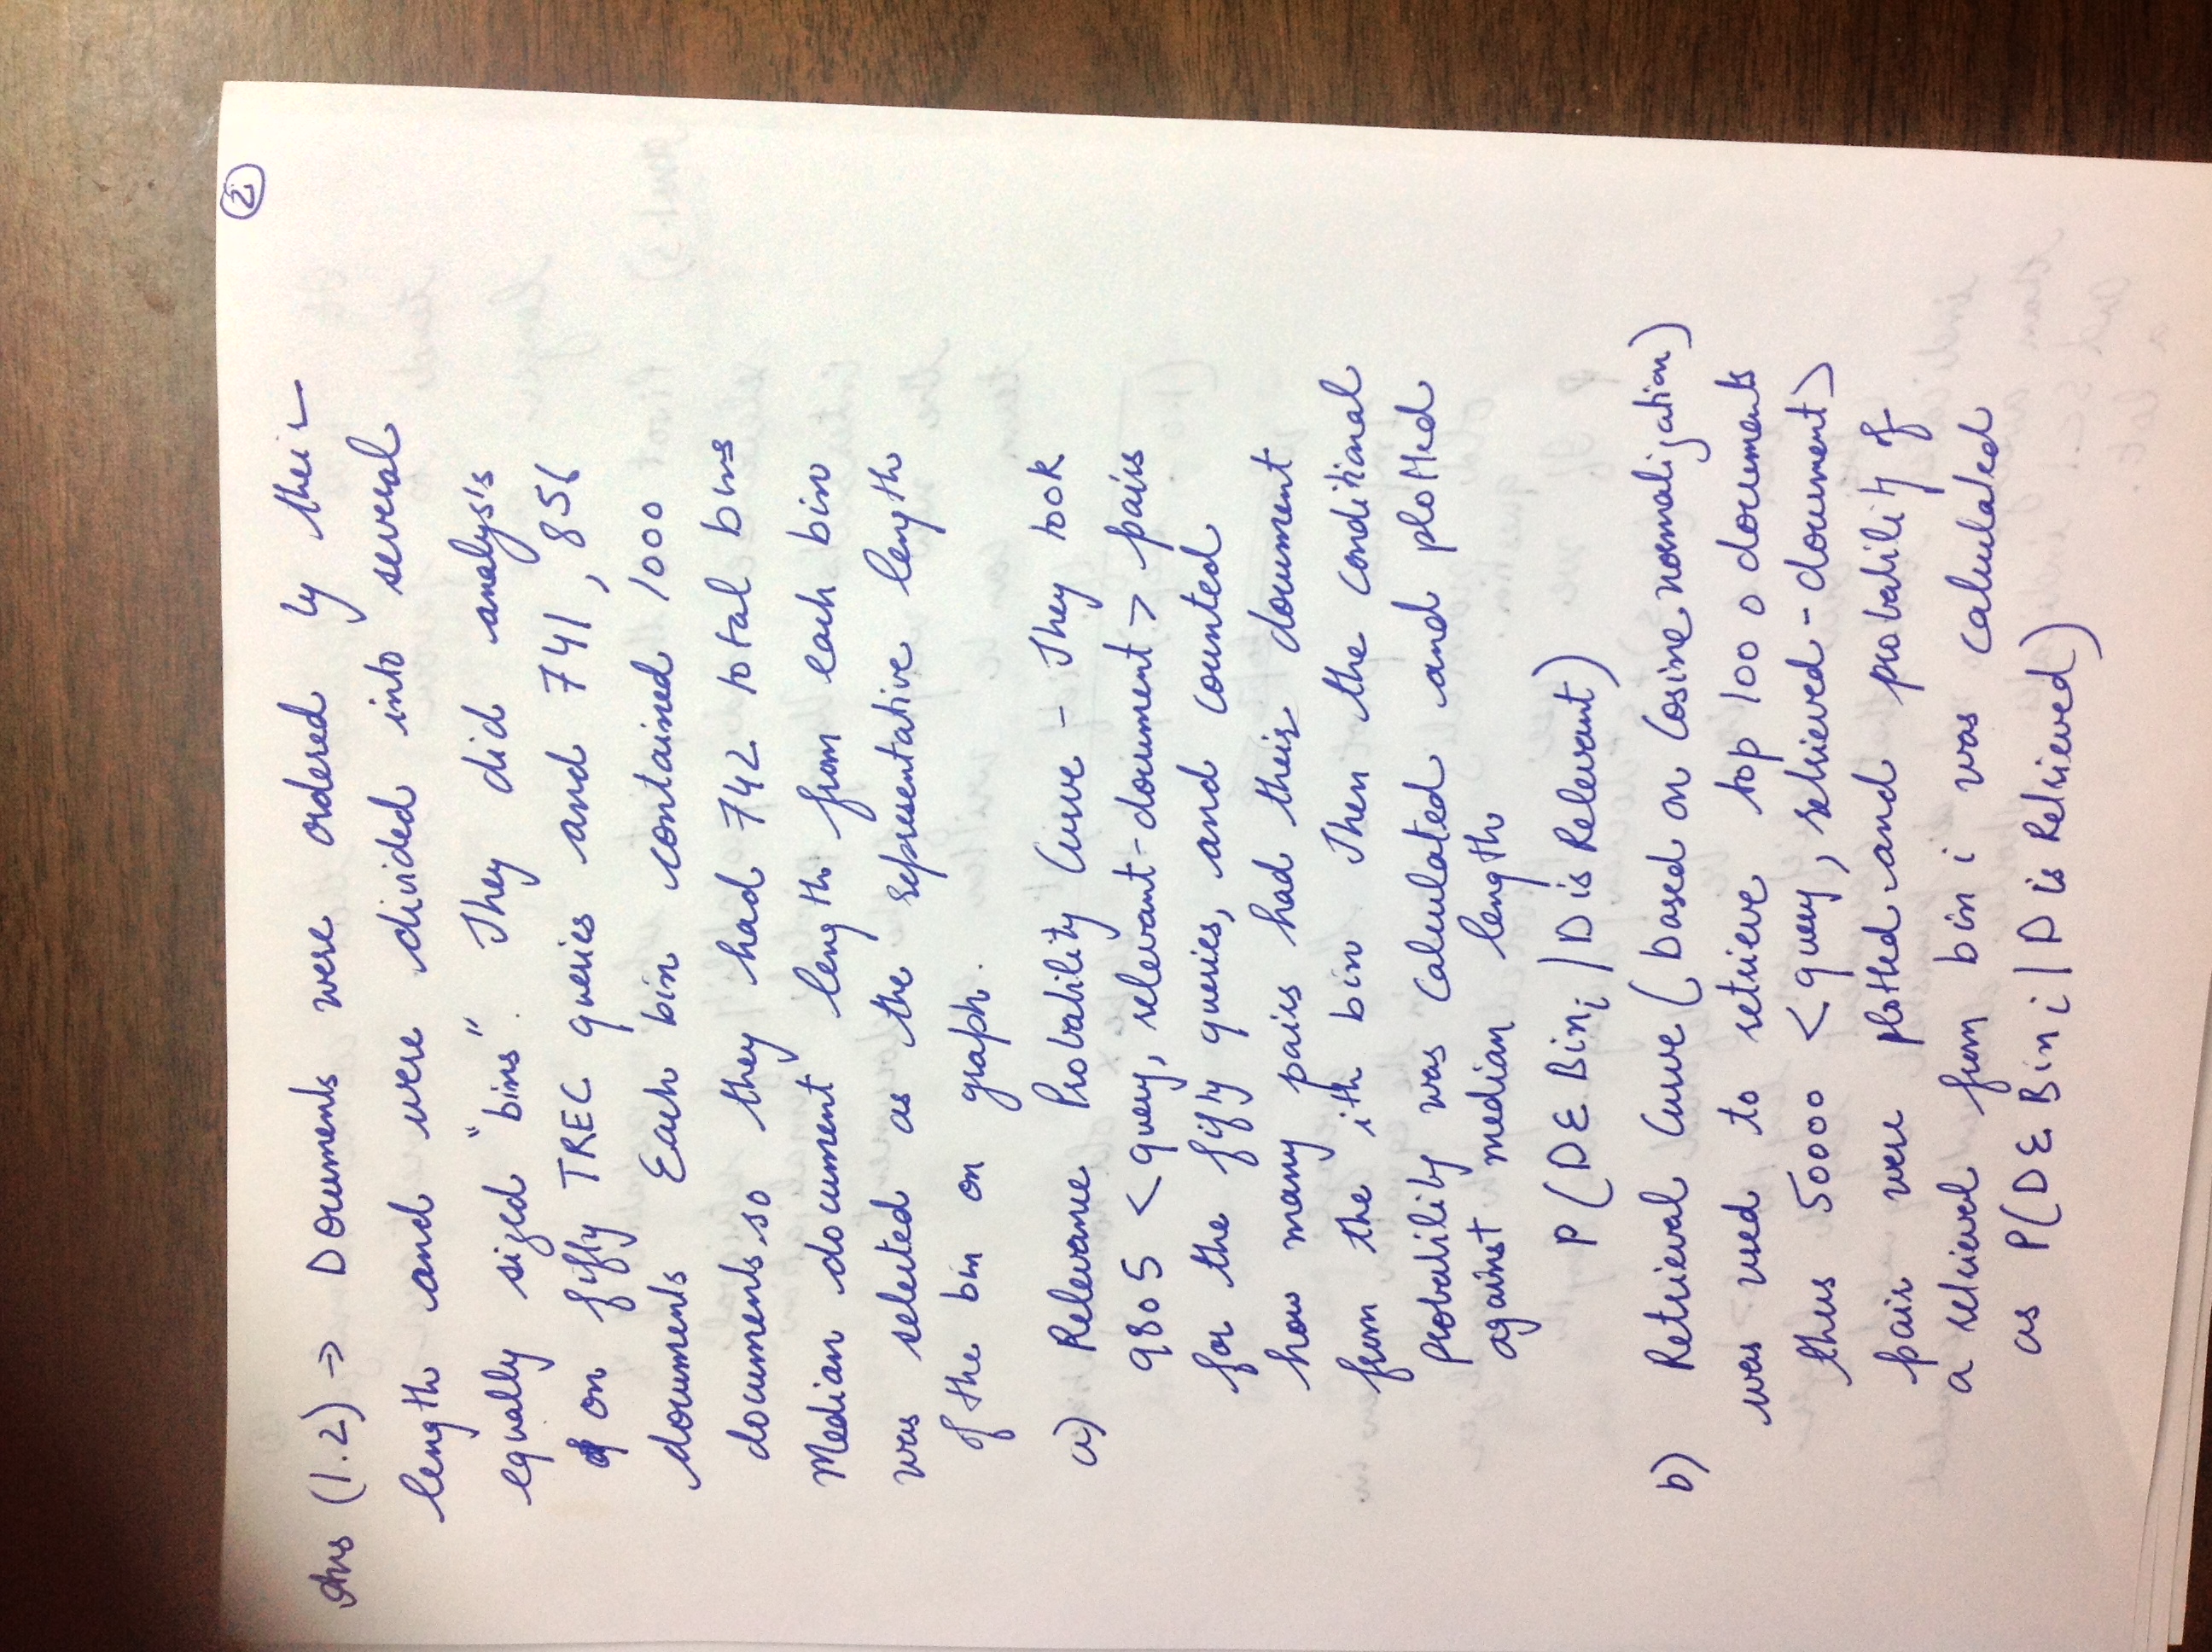 2
Ans (1.2) → Documents were ordered by their
length and were divided into several
equally sized "bins". They did analysis
on fifty TREC queries and 741,856
documents Each bin contained 1000
documents so they had 742 total bins
Median document length from each bin
was selected as the representative length
of the bin on graph.
a) Relevance Probability Curve - They took
9805 <query, relevant-document> pairs
for the fifty queries, and counted
how many pairs had their document
from the ith bin Then the conditional
probability was calculated and plotted
against median length
P(D ε Bini | D is Relevant)
b) Retrieval Curve (based on Cosine normalization)
was used to retrieve top 1000 documents
thus 50000 <query, retrieved-document>
pair were plotted and probability of
a retrieval from bin i was calculated
as P(D ε Bin i | D is Retrieved)